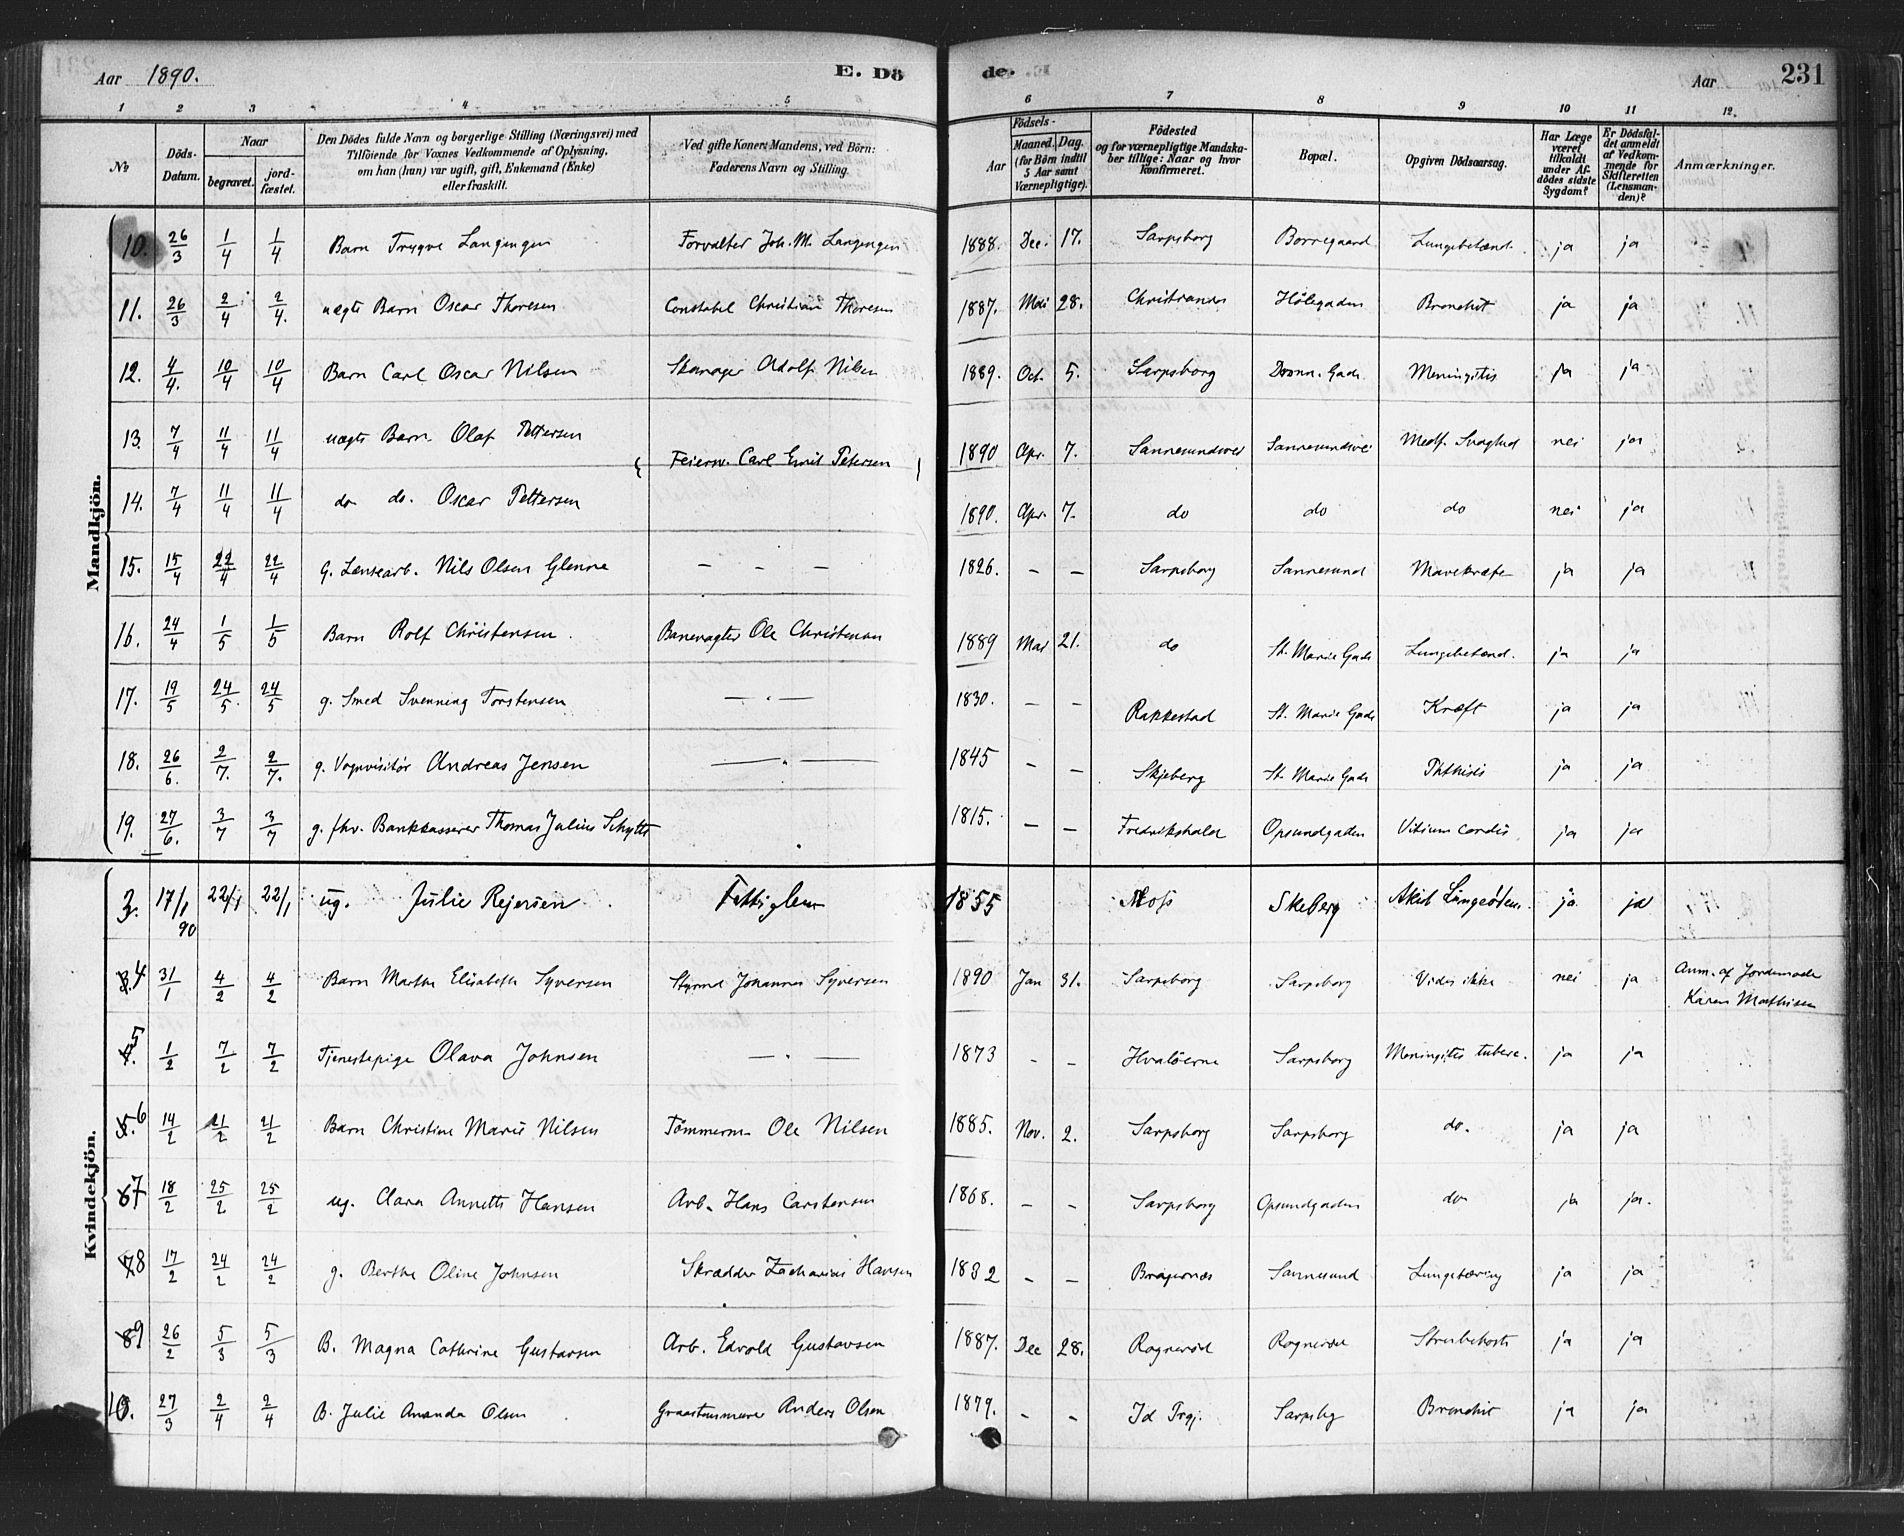 Aar 1890. E. Dö de. Aar 231
1 2 3 4 5 6 7 8 9 10 11 12.
No Döds-Datum. Naar begravet. jord-fæstet. Den Dödes fulde Navn og borgerlige Stilling (Næringsvei) med Tilföiende for Voxnes Vedkommende af Oplysning, om han (hun) var ugift, gift, Enkemand (Enke) eller fraskilt. Ved gifte Koner: Mandens, ved Börn: Faderens Navn og Stilling. Födsels- Aar Maaned. Dag. (for Börn indtil 5 Aar samt Værnepligtige). Födested og for værnepligtige Mandskaber tillige: Naar og hvor konfirmeret. Bopæl. Opgiven Dödsaarsag. Har Læge været tilkaldt under Afdödes sidste Sygdom? Er Dödsfaldet anmeldt af Vedkommende for Skifteretten (Lensmanden)? Anmærkninger.
Mandkjön.
10. 26/3 1/4 1/4 Barn Trygve Langengen Forvalter Joh. M. Langengen 1888. Dec. 17. Sarpsborg Borregaard Lungebetænd. ja ja
11. 26/3 2/4 2/4. uægte Barn Oscar Thoresen Constabel Christian Thoresen 1887. Mai 28. Hølegaden Bronchit ja ja
12. 4/4. 10/4 10/4 Barn Carl Oscar Nilsen Skomager Adolf Nilsen 1889. Oct. 5. Sarpsborg Dronn. Gade Meningitis ja ja
13. 7/4 11/4 11/4 uægte Barn Olaf Pettersen { Feiersv. Carl Emil Petersen 1890 Apr. 7. Sannesundsvei Sannesundsvei Medf. Svaghed nei ja
14. 7/4 11/4 11/4 do do. Oscar Pettersen 1890. Apr. 7. do do do nei ja
15. 15/4 22/4 22/4 g. Lensearb. Nils Olsen Glenne – – – 1826. – – Sarpsborg Sannesund Mavekræft ja ja
16. 24/4 1/5 1/5 Barn Rolf Christensen. Banevogter Ole Christensen 1889 Mar 21. do St. Marie Gade Lungebetænd. ja ja
17. 19/5 24/5. 24/5 g. Smed Svenning Torstensen – " – 1830. – – Rakkestad St. Marie Gade Kræft ja ja
18. 26/6. 2/7. 2/7. g. Vognvisitør Andreas Jensen – " – 1845 – – Skjeberg St. Marie Gade Phthisis ja ja
19. 27/6. 3/7 3/7 g. fhv. Bankkasserer Thomas Julius Schytte 1815. – – Fredrikshald Opsundgaden Vitium cordis ja ja
Kvindekjön.
3. 17/1 90 22/1 22/1 ug. Julie Rejersen Fattiglem 1855 Moss Skeberg Akut Lungeödem. ja ja
4 31/1 4/2 4/2 Barn Marthe Elisabeth Syversen Styrmd Johannes Syversen 1890 Jan 31. Sarpsborg Sarpsborg Vides ikke nei ja Anm. af Jordemoder Karen Mathisen
5 1/2 7/2 7/2 Tjenestepige Olava Johnsen – " – 1873 – – Hvaløerne Sarpsborg Meningitis tuberc. ja ja
6 14/2 21/2 21/2 Barn Christine Marie Nilsen Tømmerm. Ole Nilsen 1885. Nov. 2. Sarpsborg Sarpsborg do. ja ja
7 18/2 25/2 25/2 ug. Clara Annette Hansen Arb. Hans Carstensen 1868. – – Sarpsborg Opsundgaden do ja ja.
8 17/2 24/2 24/2 g. Berthe Oline Johnsen Skrædder Zacharias Hansen 1832 – – Bragernæs Sannesund Lungetæring ja ja
9 26/2 5/3 5/3 B. Magna Cathrine Gustavsen Arb. Edvold Gustavsen 1887. Dec 28. Rognerød Rognerød Strubehoste ja ja
10. 27/3 2/4 2/4 B. Julie Amanda Olsen Graastensmurer Anders Olsen 1879. – – Id Prgj. Sarpsbg Bronchit ja ja